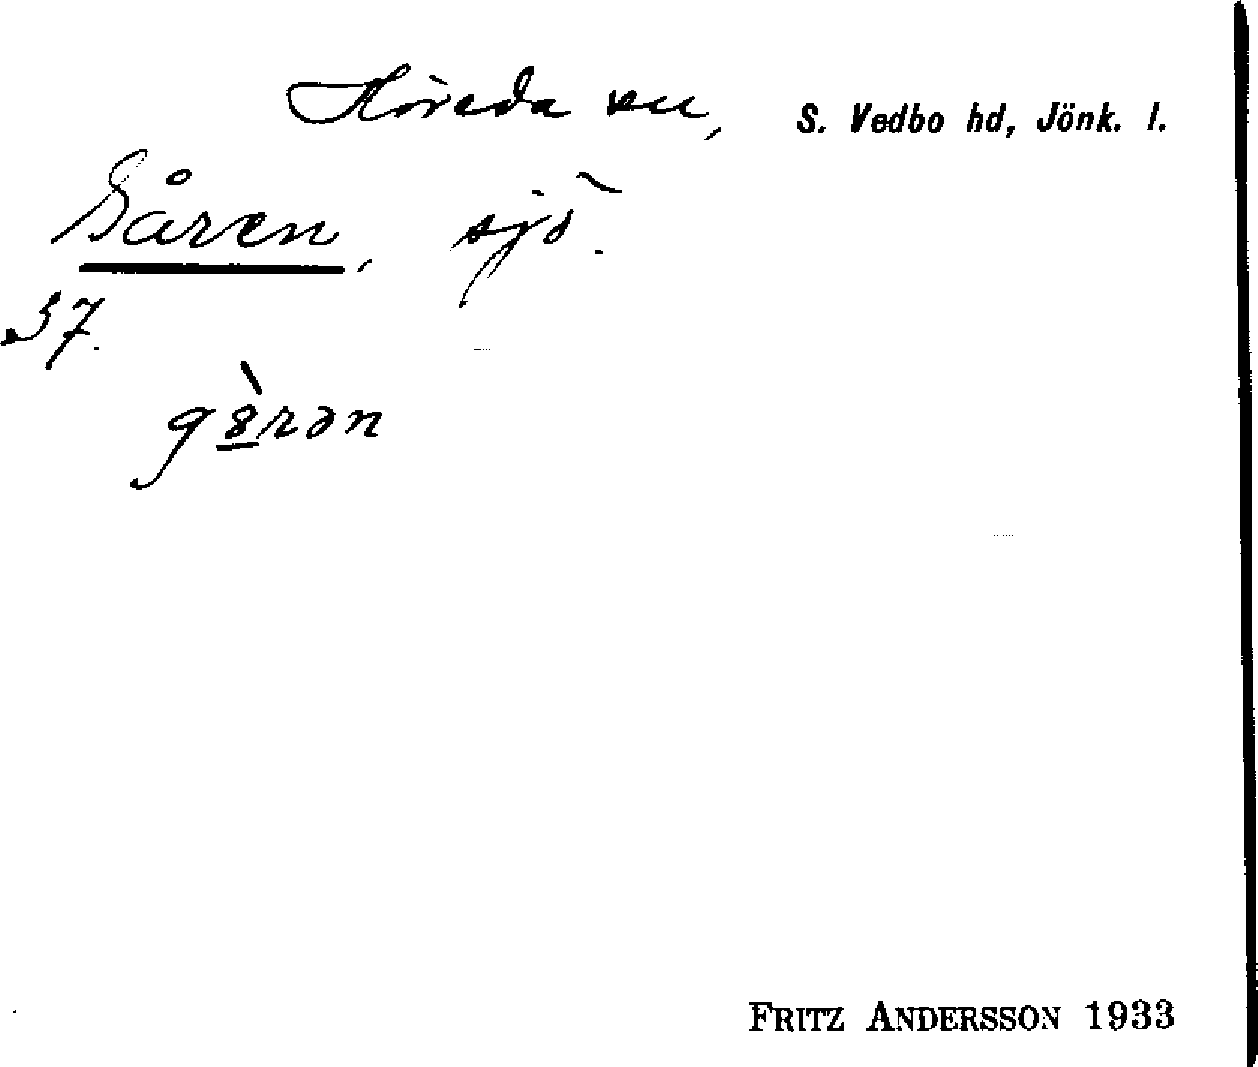 Höreda sn, S. Vedbo hd, Jönk. l.
Gåren, sjö.
37.
gȣ̀rən
FRITZ ANDERSSON 1933